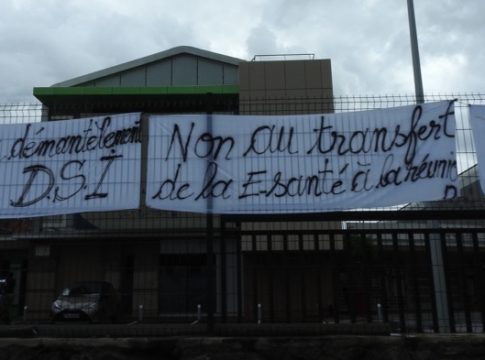 démantèlement
D.S.I
Non au transfert
de la E-santé à la réunn